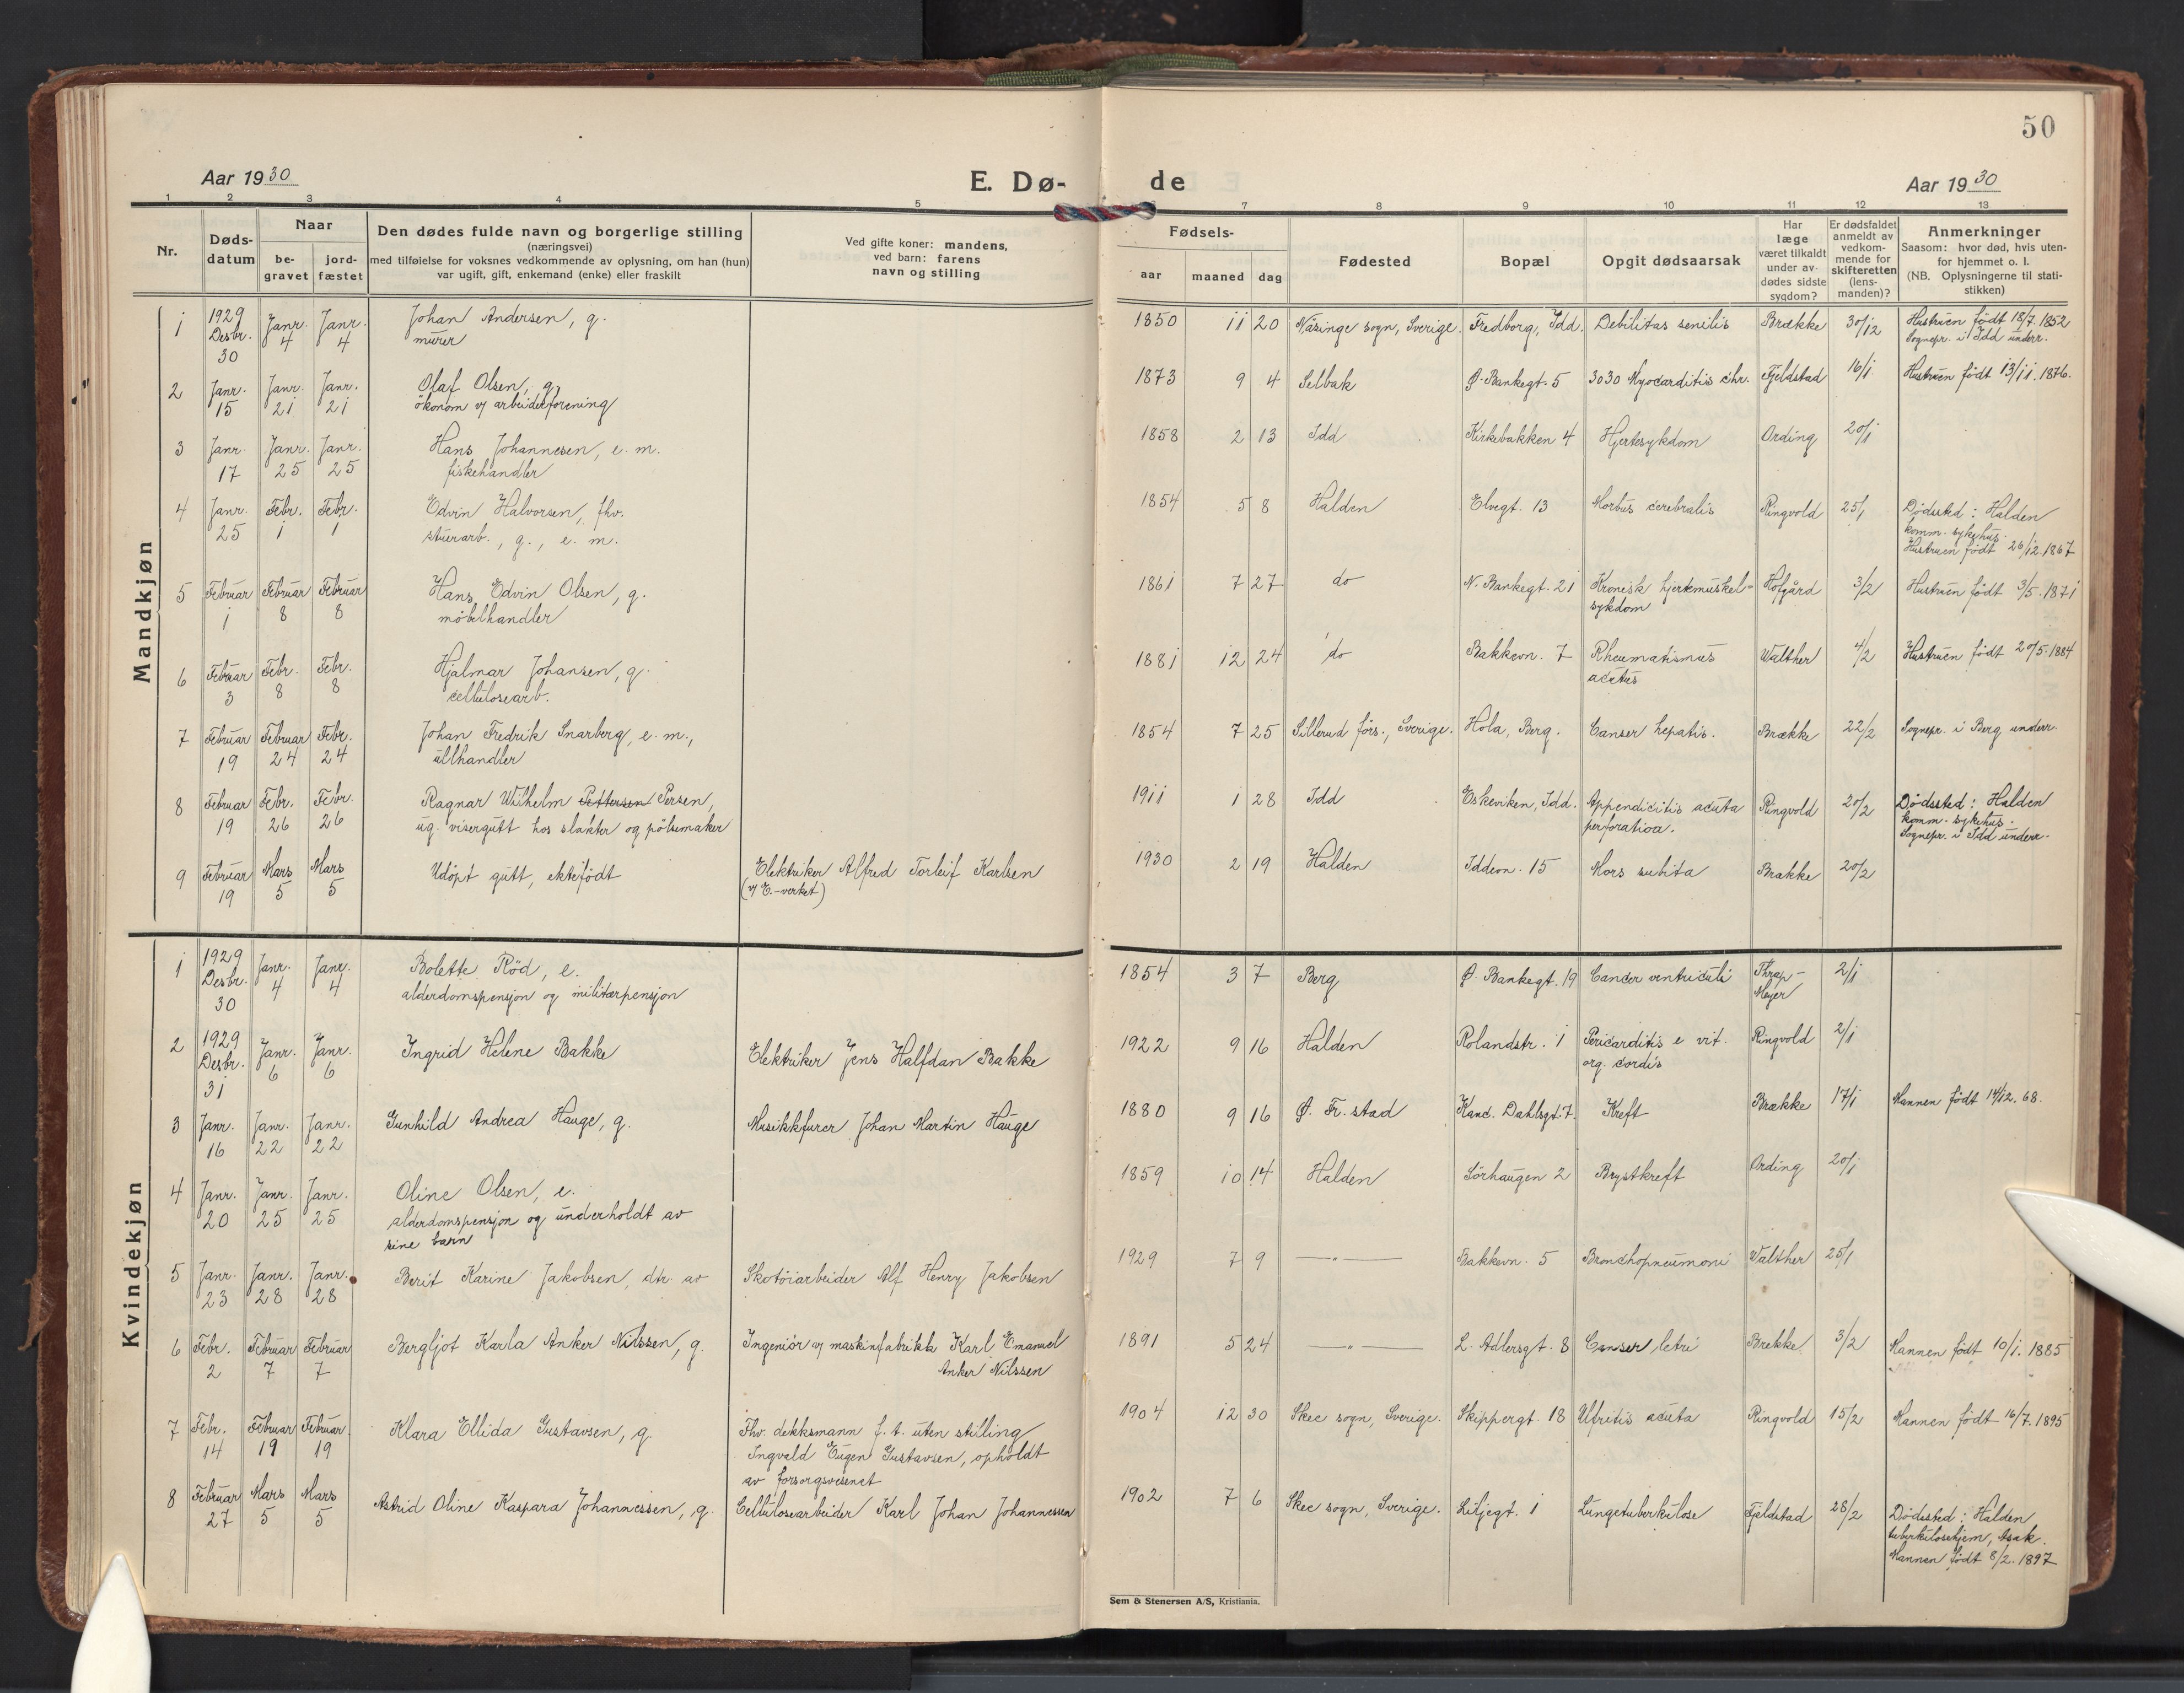 50
Aar 1930 E. Dø- de Aar 1930
1 2 3 4 5 7 8 9 10 11 12 13
Nr. Døds-datum Naar be-gravet jord-fæstet
Den dødes fulde navn og borgerlige stilling
(næringsvei)
med tilføielse for voksnes vedkommende av oplysning, om han (hun)
var ugift, gift, enkemand (enke) eller fraskilt
Ved gifte koner: mandens,
ved barn: farens
navn og stilling
Fødsels-
aar maaned dag
Fødested
Bopæl
Opgit dødsaarsak
Har læge været tilkaldt under av-dødes sidste sygdom?
Er dødsfaldet anmeldt av vedkom-mende for skifteretten (lens-manden)?
Anmerkninger
Saasom: hvor død, hvis uten-
for hjemmet o. l.
(NB. Oplysningerne til stati-
stikken)
Mandkjøn
1 1929 Desbr. 30 Janr. 4 Janr. 4 Johan Andersen, g. murer 1850 11 20 Näsinge sogn, Sverige. Fredborg, Idd. Debilitas senilis Brække 30/12 Hustruen født 18/7. 1852 Sognepr. i Idd underr.
2 Janr. 15 Janr. 21 Janr. 21 Olaf Olsen, g. økonom v/ arbeiderforening 1873 9 4 Selbak Ø. Bankegt. 5 3030 Myocarditis chr. Fjeldstad 16/1 Hustruen født 13/11. 1876.
3 Janr. 17 Janr. 25 Janr. 25 Hans Johannesen, e. m. fiskehandler 1858 2 13 Idd Kirkebakken 4 Hjertesykdom Ording 20/1
4 Janr. 25 Febr. 1 Febr. 1 Edvin Halvorsen, fhv. stuerarb., g., e. m. 1854 5 8 Halden Elvegt. 13 Morbus cerebralis Ringvold 25/1 Dødssted: Halden komm. sykehus. Hustruen født 26/12. 1867
5 Februar 1 Februar 8 Februar 8 Hans Edvin Olsen, g. møbelhandler 1861 7 27 do N. Bankegt. 21 Kronisk hjertemuskel= sykdom Hofgård 3/2 Hustruen født 3/5. 1871
6 Februar 3 Febr. 8 Febr. 8 Hjalmar Johansen, g. cellulosearb. 1881 12 24 do Bakkevn. 7 Rheumatismus acutus Walther 4/2 Hustruen født 20/5. 1884
7 Februar 19 Februar 24 Febr. 24 Johan Fredrik Snarberg, e. m., ullhandler 1854 7 25 Sillerud førs., Sverige. Hola, Berg. Canser hepatis. Brække 22/2 Sognepr. i Berg underr.
8 Februar 19 Febr. 26 Febr. 26 Ragnar Wilhelm Pettersen Persen, ug. visergutt hos slakter og pølsemaker 1911 1 28 Idd Eskeviken, Idd. Appendicitis acuta perforatioa. Ringvold 20/2 Dødssted: Halden komm. sykehus. Sognepr. i Idd underr.
9 Februar 19 Mars 5 Mars 5 Udøpt gutt, ektefødt Elektriker Alfred Torleif Karlsen (v/ E.-verket) 1930 2 19 Halden Iddevn. 15 Mors subita Brække 20/2
Kvindekjøn
1 1929 Desbr. 30 Janr. 4 Janr. 4 Bolette Rød, e. alderdomspensjon og militærpensjon 1854 3 7 Berg Ø. Bankegt. 19 Cancer ventriculi Thrap-Meyer 2/1
2 1929 Desbr. 31 Janr. 6 Janr. 6 Ingrid Helene Bakke Elektriker Jens Halfdan Bakke 1922 9 16 Halden Rolandstr. 1 Pericarditis e vit. org. cordis Ringvold 2/1
3 Janr. 16 Janr. 22 Janr. 22 Gunhild Andrea Hauge, g. Musikkfurer Johan Martin Hauge 1880 9 16 Ø. Fr. stad Kanc. Dahlsgt. 7. Kreft Brække 17/1 Mannen født 14/12. 68.
4 Janr. 20 Janr. 25 Janr. 25 Oline Olsen, e. alderdomspensjon og underholdt av sine barn 1859 10 14 Halden Sørhaugen 2 Brystkreft Ording 20/1
5 Janr. 23 Janr. 28 Janr. 28 Berit Karine Jakobsen, dtr. av Skotøiarbeider Alf Henry Jakobsen 1929 7 9 —"— Bakkevn. 5 Bronchopneumoni Walther 25/1
6 Febr. 2 Februar 7 Februar 7 Bergljot Karla Anker Nilssen, g. Ingeniør v/ maskinfabrikk Karl Emanuel Anker Nilssen 1891 5 24 —"— L. Adlersgt. 8 Canser Brekke 3/2 Mannen født 10/1. 1885
7 Febr. 14 Februar 19 Februar 19 Klara Ellida Gustavsen, g. Fhv. dekksmann f. t. uten stilling Ingvald Eugen Gustavsen, opholdt av forsorgsvesenet 1904 12 30 Skee sogn, Sverige. Skippergt. 18 acuta Ringvold 15/2 Mannen født 16/7. 1895
8 Februar 27 Mars 5 Mars 5 Astrid Oline Kaspara Johannessen, g. Cellulosearbeider Karl Johan Johannessen 1902 7 6 Skee sogn, Sverige. Liljegt. 1 Lungetuberkulose Fjeldstad 28/2 Dødssted: Halden tuberkulosehjem, Asak. Mannen født 8/2. 1897
Sem & Stenersen A/S, Kristiania.